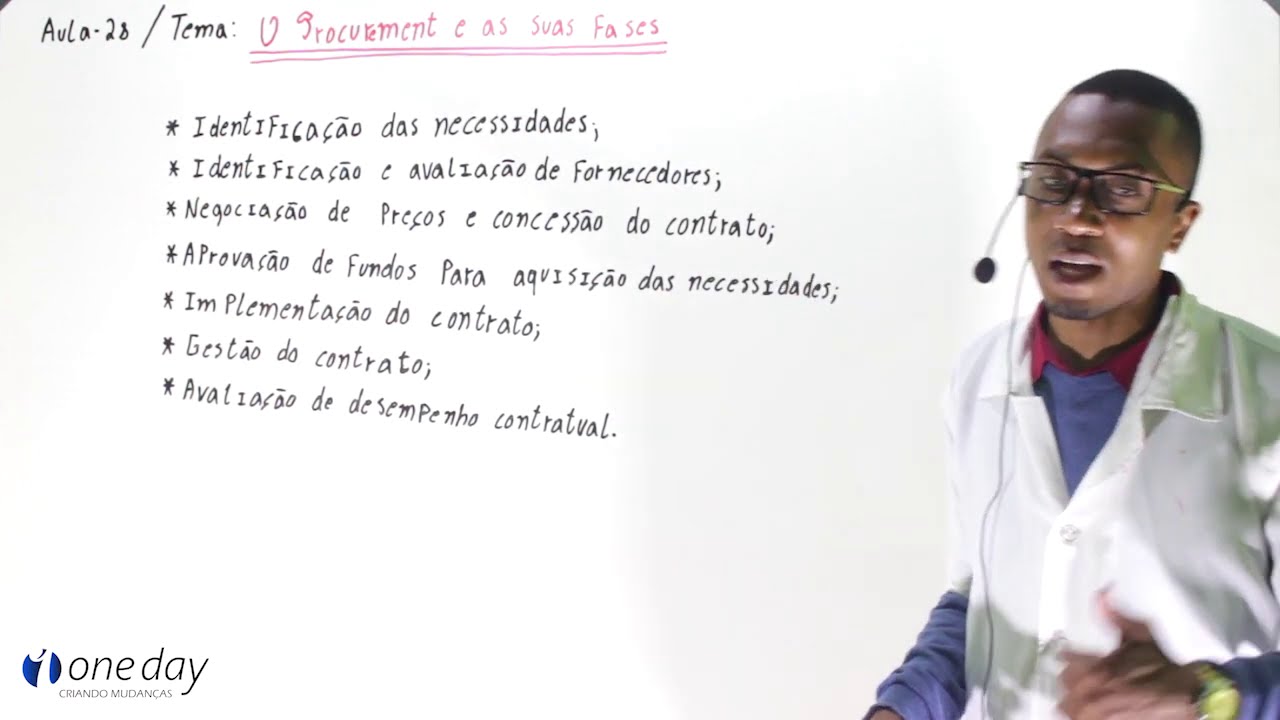 Aula-28 / Tema: O Procurement e as suas Fases
* Identificação das necessidades;
* Identificação e avaliação de Fornecedores;
* Negociação de Preços e concessão do contrato;
* Aprovação de Fundos Para aquisição das necessidades;
* Implementação do contrato;
* Gestão do contrato;
* Avaliação de desempenho contratual.
one day
CRIANDO MUDANÇAS